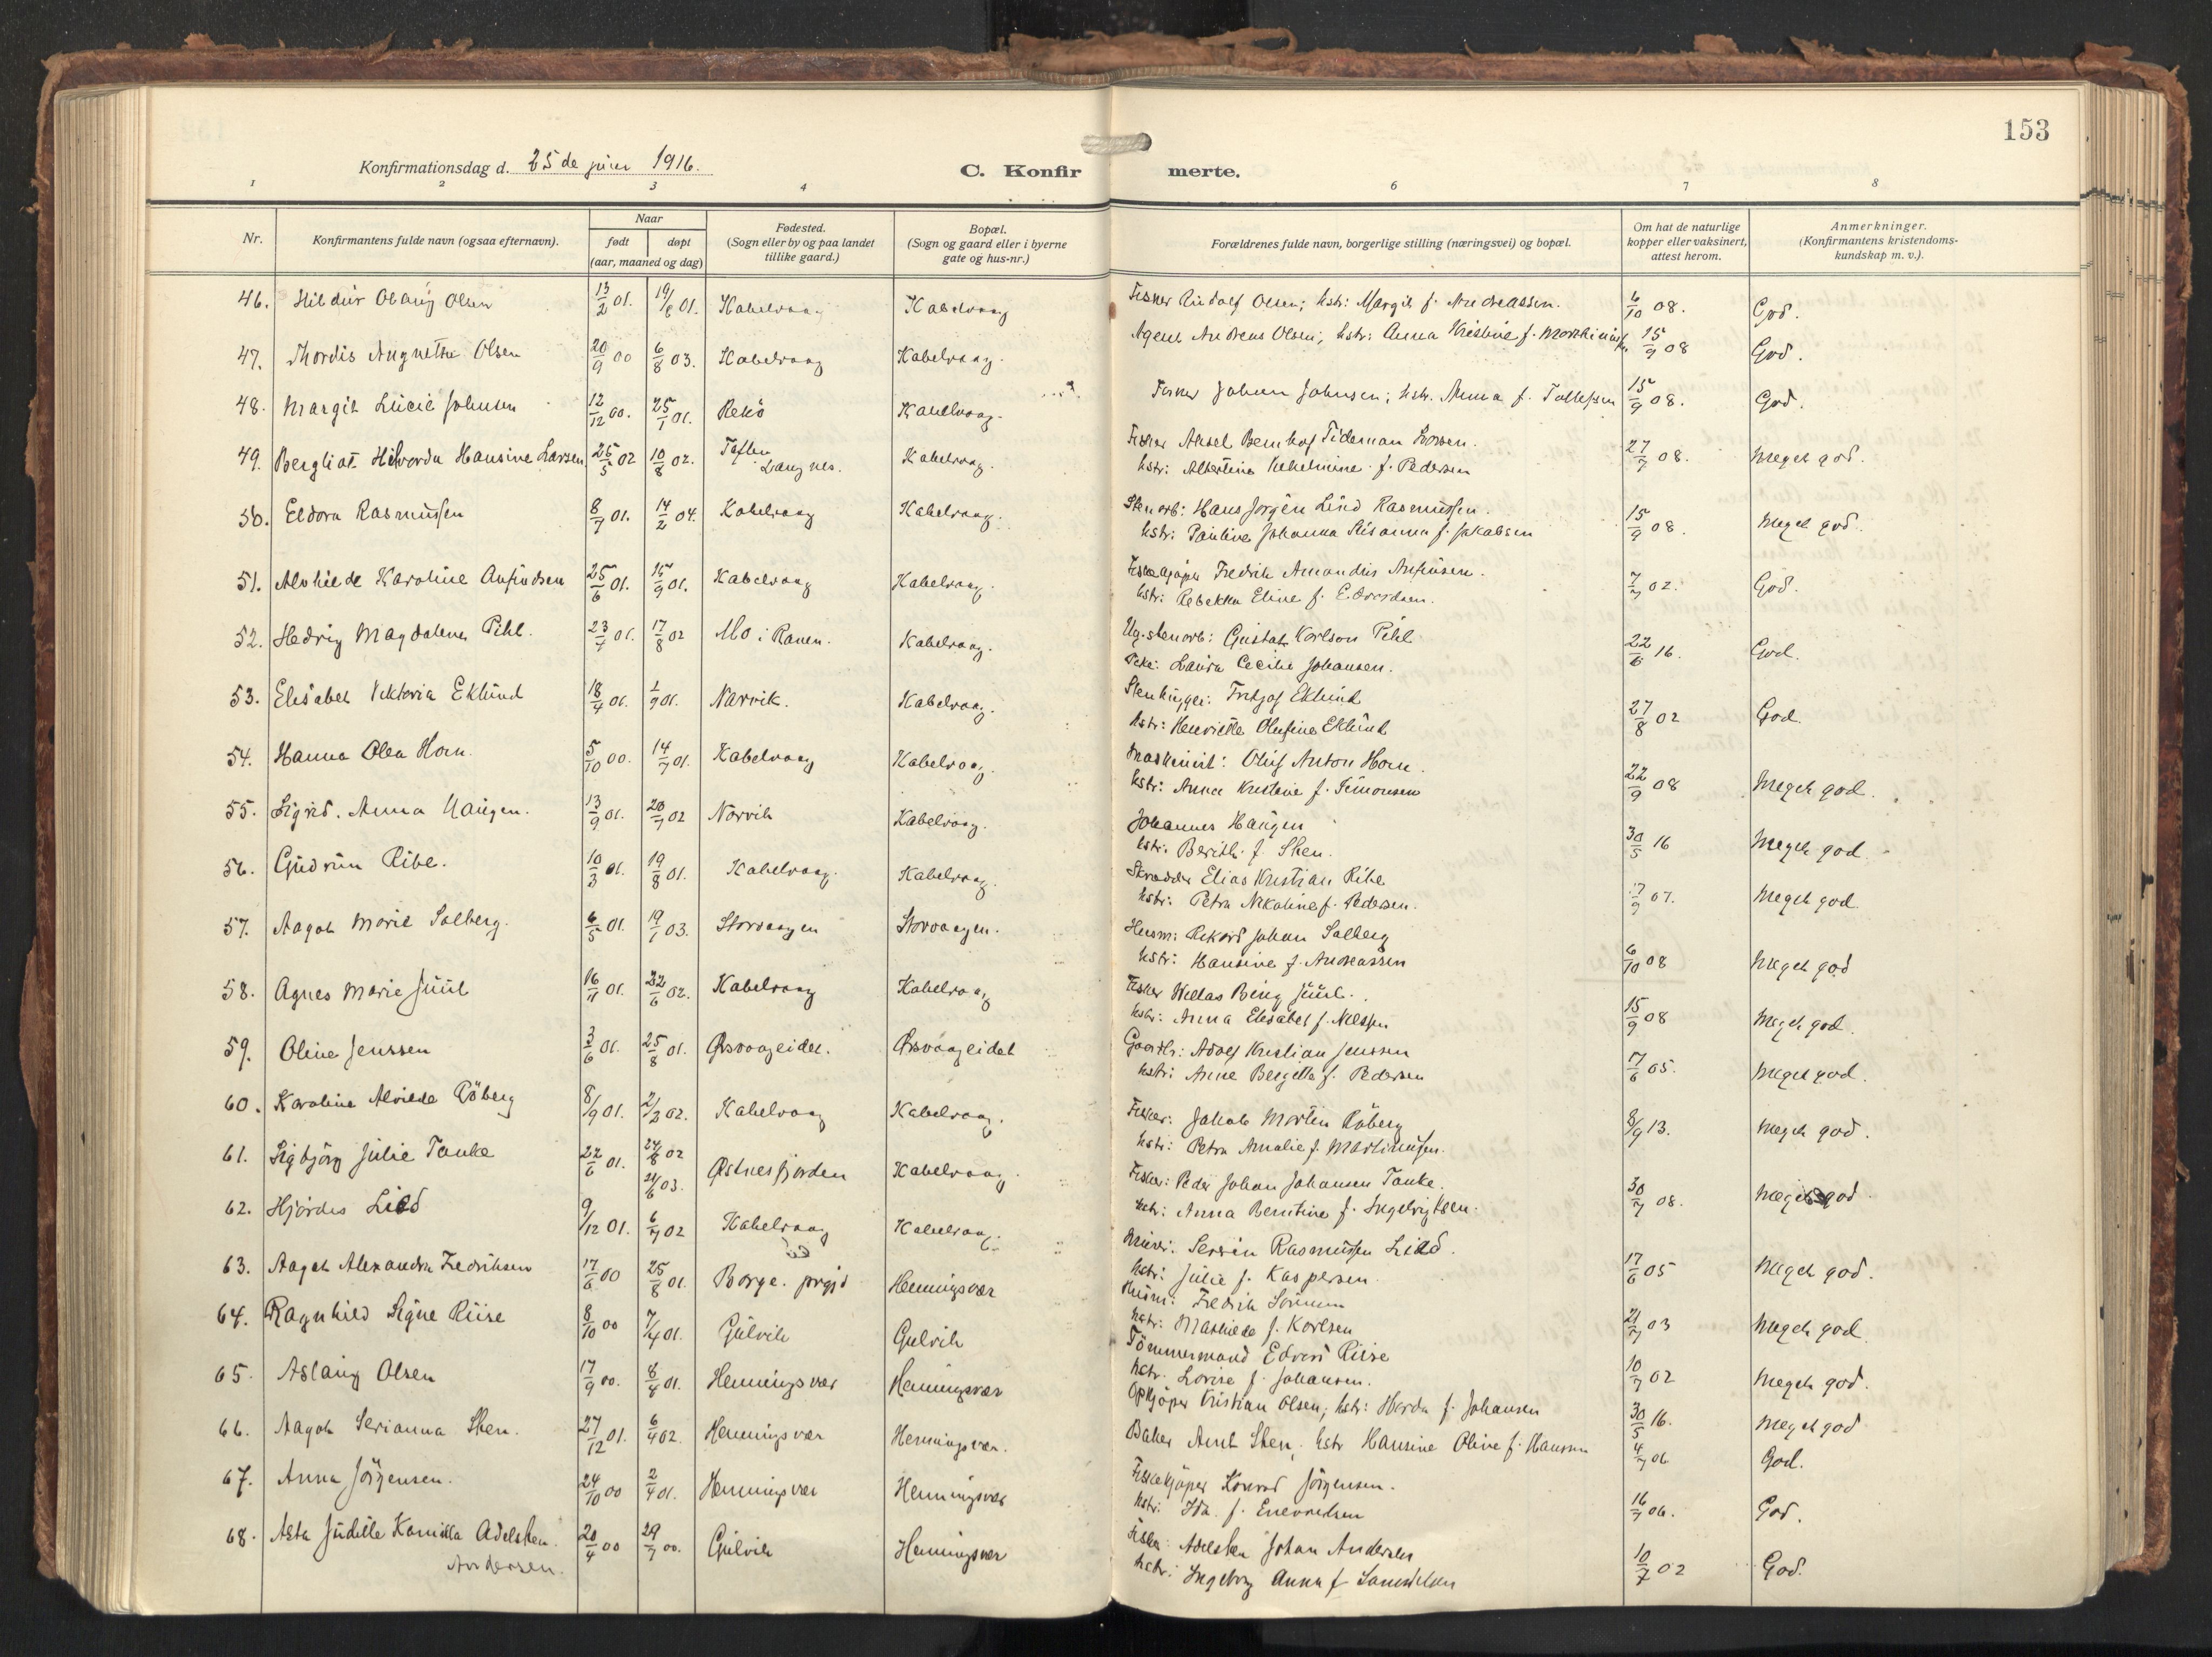 153
Konfirmationsdag d. 25 de juni 1916.
C. Konfirmerte.
1 2 3 4 6 7 8
Nr. Konfirmantens fulde navn (ogsaa efternavn). Naar født døpt (aar, maaned og dag) Fødested. (Sogn eller by og paa landet tillike gaard.) Bopæl. (Sogn og gaard eller i byerne gate og hus-nr.) Forældrenes fulde navn, borgerlige stilling (næringsvei) og bopæl. Om hat de naturlige kopper eller vaksinert, attest herom. Anmerkninger. (Konfirmantens kristendoms-kundskap m. v.).
46. Hildur Olaug Olsen 13/2 01. 19/8 01. Kabelvaag Kabelvaag Fisker Rudolf Olsen; hstr: Margit f. Andreassen. 6/10 08. God.
47. Thordis Augnethe Olsen 20/9 00 6/8 03. Kabelvaag Kabelvaag. Agent Andreas Olsen; hstr: Anna Kristine f. 15/9 08 God.
48. Margit Lucie Johnsen 12/12 00. 25/1 01. Rekö Kabelvaag. Fisker Johan Johnsen; hstr. Anna f. Tollefsen 15/9 08. God.
49. Bergliot Hilvarda Hansine Larsen 25/5 02 10/8 02. Langnes. Kabelvaag. Fisker Aksel Bernhof Tideman Larsen.
hstr: Albertine f. Pedersen 27/7 08. Meget god.
50. Eldora Rasmussen 8/7 01. 14/2 04. Kabelvaag Kabelvaag. Stenarb: Hans Jørgen Lind Rasmussen.
hstr: Pauline Johanna Susanna f. Jakobsen 15/9 08. Meget god.
51. Alvhilde Karoline Anfindsen 25/6 01. 15/9 01. Kabelvaag Kabelvaag. Fiskekjøper Fredrik Amandus Anfinsen.
hstr: Rebekka Eline f. Edvardsen. 7/7 02. God.
52. Hedvig Magdalena Pihl. 23/4 01. 17/8 02 Mo i Ranen. Kabelvaag. Ug. stenarb: Gustab Karlson Pihl
Pike: Laura Cecilie Johansen. 22/6 16. God.
53. Elisabet Viktoria Eklund 18/4 01. 1/9 01. Narvik. Kabelvaag. Stenhugger: Fritjof Eklund
hstr: Henriette Olufine Eklund 27/8 02 God.
54. Hanna Olea Horn. 5/10 00. 14/7 01. Kabelvaag Kabelvaag. Maskinist: Oluf Anton Horn.
hstr: Anna Kristine f. Simonsen 22/9 08 Meget god.
55. Sigrid. Anna Haugen. 13/9 01. 20/7 02 Narvik Kabelvaag. Johannes Haugen
hstr. Berith f. Sten. 30/5 16 Meget god.
56. Gudrun Ribe. 10/3 01. 19/8 01. Kabelvaag. Kabelvaag. Skrædder Elias Kristian Ribe
hstr: Petra Nikoline f. Pedersen. 7/9 07. Meget god.
57. Aagot Marie Solberg. 6/5 01. 19/1 03. Storvaagen Storvaagen. Husm: Rikard Johan Solberg
hstr: Hansine f. Andreassen 6/10 08 Meget god
58. Agnes Marie Juul 16/11 01. 22/6 02. Kabelvaag Kabelvaag Fisker Willas Bing Juul.
hstr: Anna Elisabet f. Nilssen 15/9 08 Meget god.
59. Oline Jenssen 3/6 01. 25/8 01. Ørsvaageidet. Ørsvaageidet Gaardbr: Adolf Kristian Jenssen
hstr: Anne Bergitte f. Pedersen 17/6 05. Meget god.
60. Karoline Alvilde Röberg 8/9 01. 2/2 02. Kabelvaag Kabelvaag. Fisker: Jakob Martin Röberg
hstr: Petra Amalie f. Martinussen. 8/9 13. Meget god.
61. Sigbjörg Julie Tanke 22/6 01. 24/8 02 21/6 03. Østnesfjorden Kabelvaag. Fisker: Peder Johan Johansen Tanke.
hstr: Anna Berntine f. Ingebrigtsen. 30/7 08. Meget god.
62. Hjördis Lied 9/12 01. 6/7 02 Kabelvaag Kabelvaag. Murer: Sevrin Rasmussen Lied.
hstr: Julie f. Kaspersen. 17/6 05 Meget god.
63. Aagot Alexandra Fredriksen 17/6 00 25/8 01. Borge. prgjd Henningsvær Husm: Fredrik
hstr: Mathilde f. Karlsen 21/7 03 Meget god
64. Ragnhild Signe Riise 8/10 00 7/4 01. Gulvik Gulvik Tömmermand Edvard Riise
hstr. Lovise f. Johansen. 10/7 02 Meget god.
65. Aslaug Olsen 17/9 00. 8/4 01. Henningsvær Henningsvær Opkjøper Kristian Olsen; hstr: Harda f. Johansen 30/5 16. Meget god
66. Aagot Serianna Sten. 27/12 01. 6/4 02. Henningsvær Henningsvær. Baker Arnt Sten; hstr Hansine Oline f. Hansen 4/7 06 God.
67. Anna Jörgensen. 24/10 00 2/4 01. Henningsvær Henningsvær Fiskekjøper Konrad Jörgensen.
hstr: Ida. f. Enevoldsen 16/7 06. God.
68. Asta Judille Kamilla Adelsten Andersen. 20/4 00 29/7 00. Gulvik Henningsvær Fisker: Adelsten Johan Andersen
hstr: Ingeborg Anna f. Samuelsen 10/7 02 God.